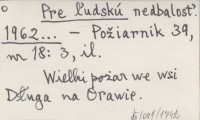 Pre ľudskú nedbalosť.
1962... – Požiarnik 39,
nr 18: 3, il.
Wielki pożar we wsi
Długa na Orawie.